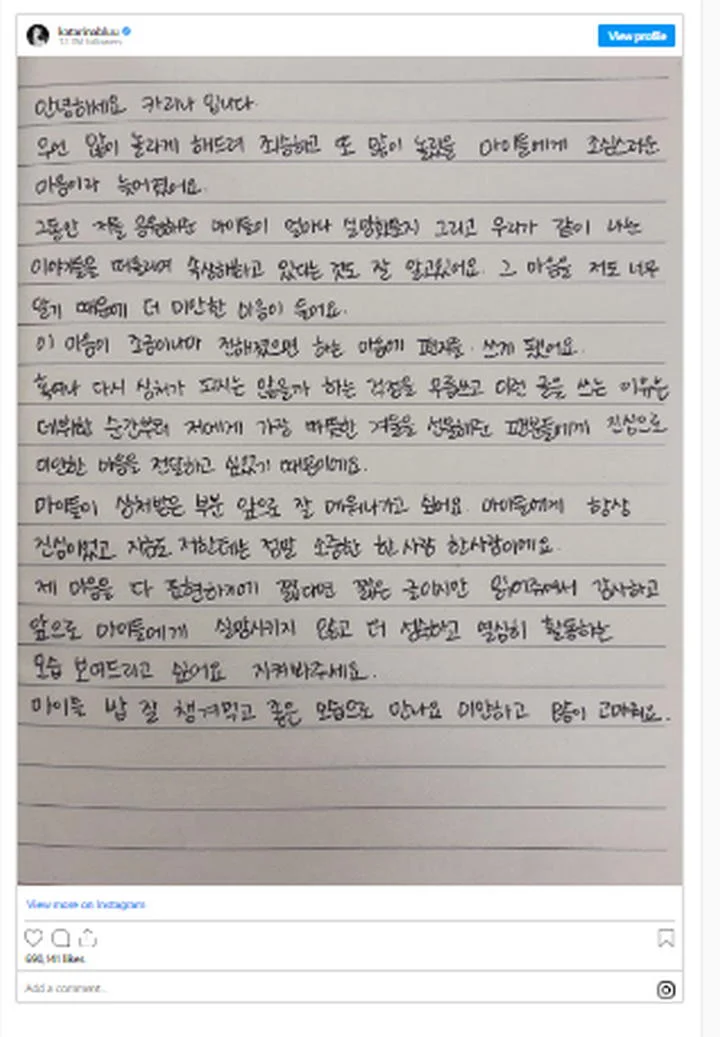 katarinabluu
View profile
안녕하세요 카리나 입니다.
우선 많이 놀라게 해드려 죄송하고 또 많이 놀랐을 마이들에게 조심스러운
마음이라 늦어졌어요.
그동안 저를 응원해준 마이들이 얼마나 실망했을지 그리고 우리가 같이 나눈
이야기들을 떠올리며 속상해하고 있다는 것도 잘 알고있어요. 그 마음을 저도 너무
알기 때문에 더 미안한 마음이 들어요.
이 마음이 조금이나마 전해졌으면 하는 마음에 편지를 쓰게 됐어요.
혹여나 다시 상처가 되지는 않을까 하는 걱정을 무릅쓰고 이런 글을 쓰는 이유는
데뷔한 순간부터 저에게 가장 따뜻한 겨울을 선물해준 팬분들에게 진심으로
미안한 마음을 전달하고 싶었기 때문이에요.
마이들이 상처받은 부분 앞으로 잘 메워나가고 싶어요. 마이들에게 항상
진심이었고 지금도 저한테는 정말 소중한 한 사람 한사람이에요.
제 마음을 다 표현하기에 짧다면 짧은 글이지만 읽어주셔서 감사하고
앞으로 마이들에게 실망시키지 않고 더 성숙하고 열심히 활동하는
모습 보여드리고 싶어요 지켜봐주세요.
마이들 밥 잘 챙겨먹고 좋은 모습으로 만나요 미안하고 많이 고마워요.
View more on Instagram
690,141 likes
Add a comment...